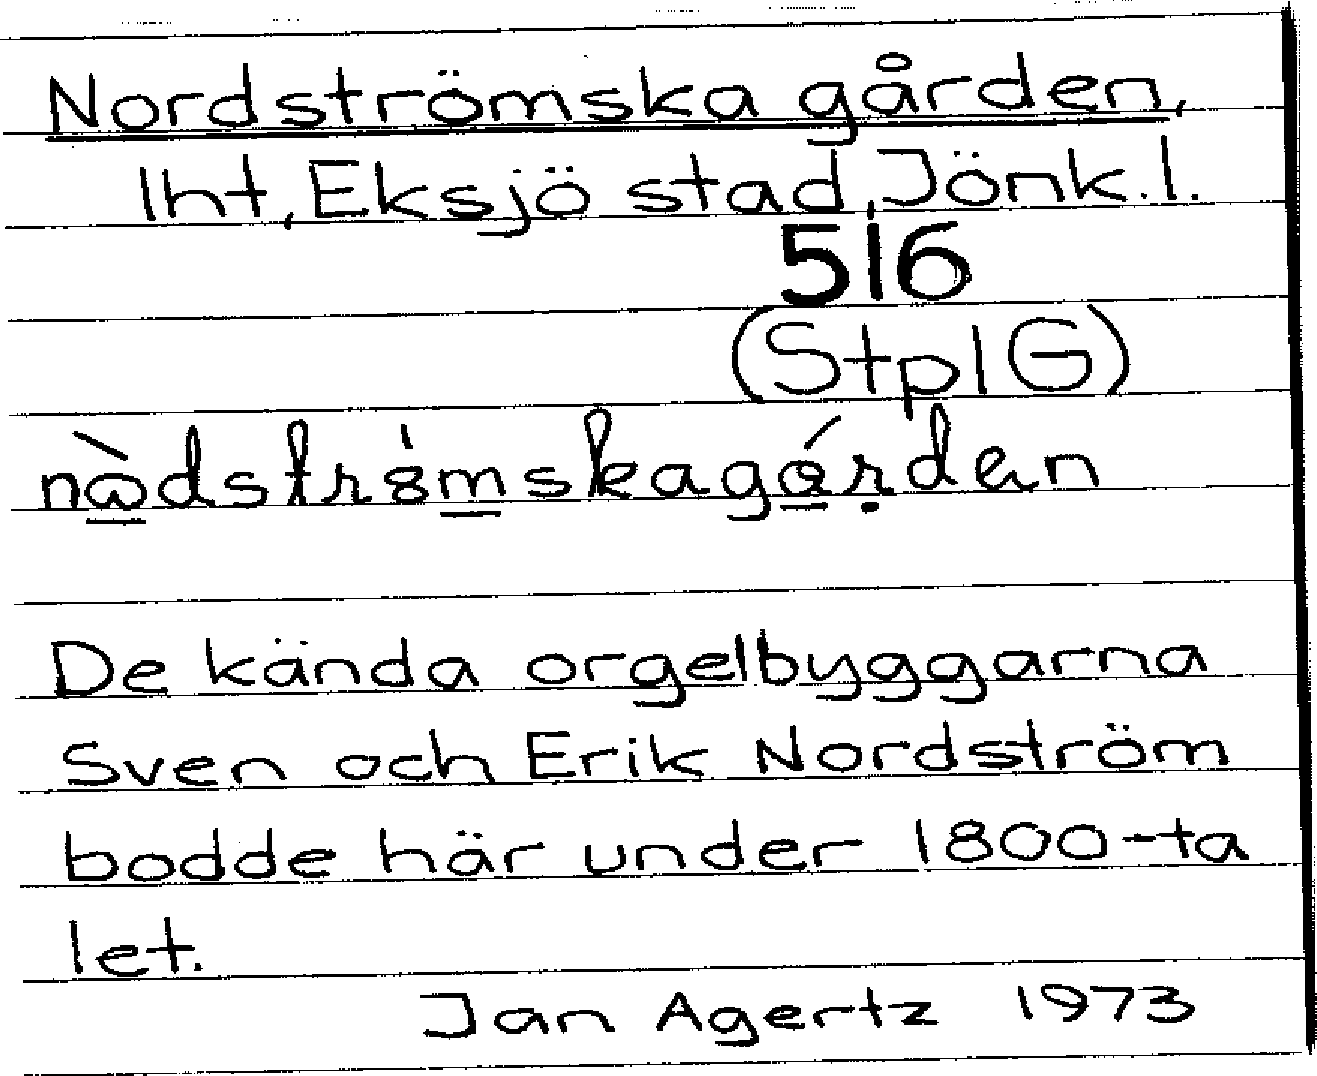 Nordströmska gården,
Iht, Eksjö stad, Jönk.l.
516
(StplG)
De kända orgelbyggarna
Sven och Erik Nordström
bodde här under 1800-ta
let.
Jan Agertz 1973